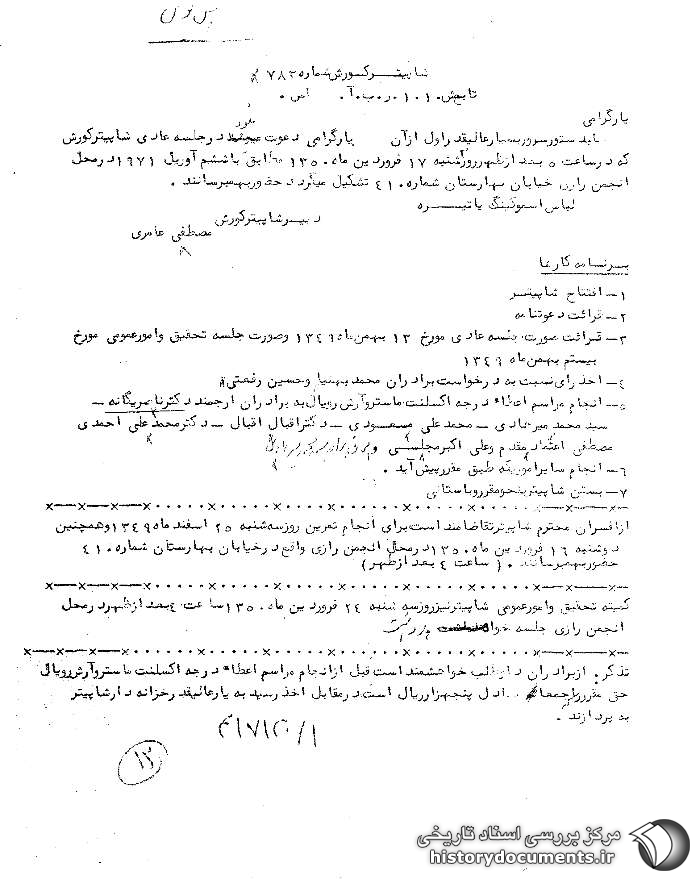 شاپیتر کورش شماره ۷۸۲۵
تابش ۱۰۱۰ ر۰ب۰آ۰ اس ۰
یارگرامی
بدستور سرور بسیار عالیقدر اول از آن یارگرامی دعوت میشود در جلسه عادی شاپیتر کورش
که در ساعت ۵ بعد از ظهر روز شنبه ۱۷ فروردین ماه ۱۳۵۰ مطابق با ششم آوریل ۱۹۷۱ در محل
انجمن رازی خیابان بهارستان شماره ۴۱۰ تشکیل میگردد حضور بهم رسانند .
لباس اسموکینگ یا تیره
دبیر شاپیتر کورش
مصطفی عامری
برنامه کارها
۱- افتتاح شاپیتر
۲- قرائت دعوتنامه
۳- قرائت صورت جلسه عادی مورخ ۱۳ بهمن ماه ۱۳۴۹ وصورت جلسه تحقیق وامورعمومی مورخ
بیستم بهمن ماه ۱۳۴۹
۴- اخذ رای نسبت به درخواست برادران محمد بهنیا وحسین رفعتی
۵- انجام مراسم اعطاء درجه اکسلنت ماستر و آرش رویال به برادران ارجمند دکتر ناصریگانه -
سید محمد میرهادی - محمد علی مسعودی - دکتر اقبال اقبال - دکتر محمد علی احمدی
مصطفی اعتماد مقدم وعلی اکبر مجلسی و
۶- انجام سایر اموریکه طبق مقرر پیش آید .
۷- بستن شاپیتر بنحو مقرر و باستانی
x—x—x—x.....x.....x.....x.....x.....x—x—x—x
از افسران محترم شاپیتر تقاضا مند است برای انجام تمرین روز سه شنبه ۲۵ اسفند ماه ۱۳۴۹ وهمچنین
دوشنبه ۱۶ فروردین ماه ۱۳۵۰ در محل انجمن رازی واقع در خیابان بهارستان شماره ۴۱۰
حضور بهمرسانند . ( ساعت ۴ بعد از ظهر )
x—x—x—x.....x.....x.....x.....x.....x—x—x—x
کمیته تحقیق وامورعمومی شاپیتر نیز روز سه شنبه ۲۴ فروردین ماه ۱۳۵۰ ساعت ۴ بعد از ظهر در محل
انجمن رازی جلسه خواهد داشت
x—x—x—x.....x.....x.....x.....x.....x—x—x—x
تذکر . از برادران داوطلب خواهشمند است قبل از انجام مراسم اعطاء درجه اکسلنت ماستر و آرش رویال
حق مقرر را جمعا معادل پنجهزار ریال است در مقابل اخذ رسید به یار عالیقدر خزانه دار شاپیتر
به پردازند .
۱۳
مرکز بررسی اسناد تاریخی
historydocuments.ir